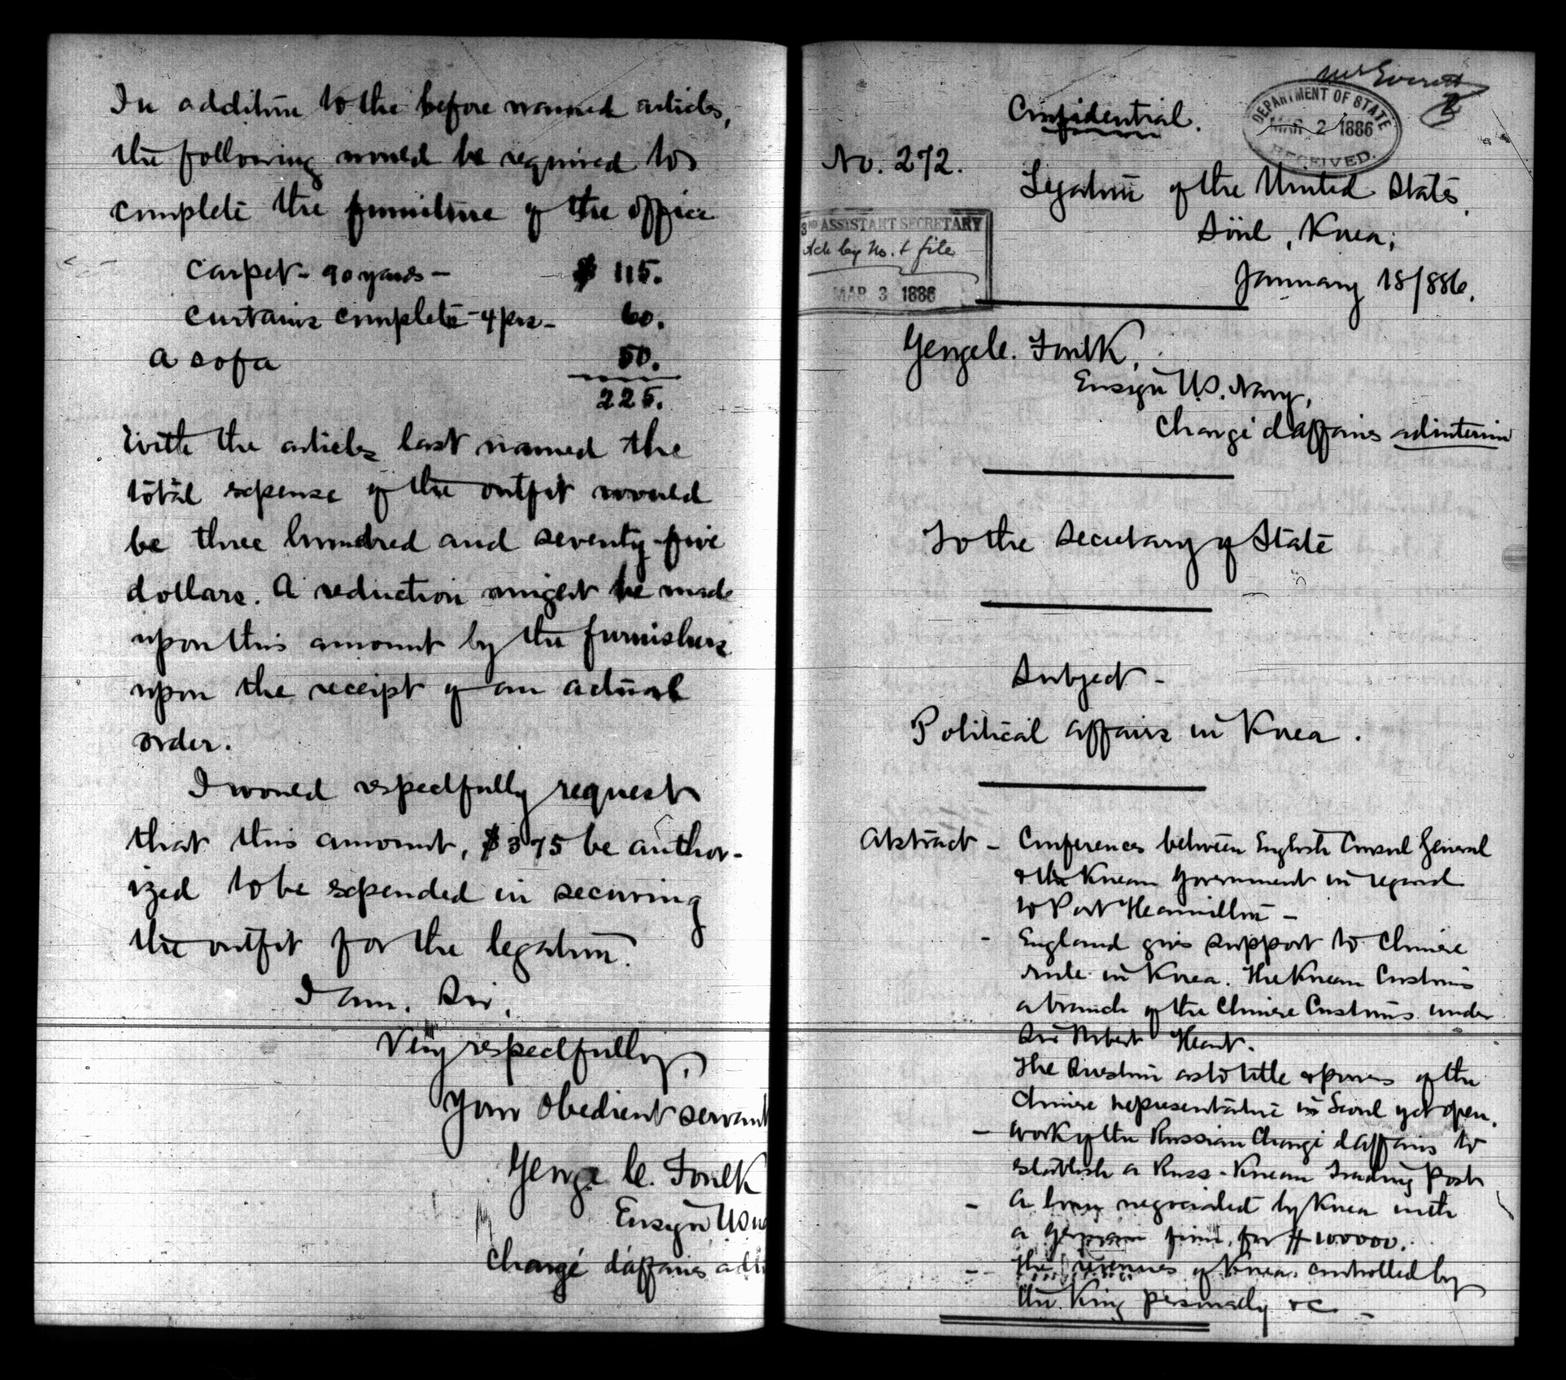 In addition to the before named articles,
the following would be required to
complete the furniture of the office
Carpet - 90 yards - $ 115.
Curtains complete - 4 prs - 60.
A sofa 50.
225.
With the articles last named the
total expense of the outfit would
be three hundred and seventy-five
dollars. A reduction might be made
upon this amount by the furnishers
upon the receipt of an actual
order.
I would respectfully request
that this amount, $375 be author-
ized to be expended in securing
the outfit for the legation.
I am, Sir,
Very respectfully,
Your obedient servant
George C. Foulk
Ensign USN
Chargé d'affaires ad in
Mr Everett
Confidential.
DEPARTMENT OF STATE
MAR 2 1886
RECEIVED.
No. 272.
Legation of the United States,
Söul, Korea;
3RD ASSISTANT SECRETARY
Ack by No. & file
MAR 3 1886
January 18/886.
George C. Foulk,
Ensign U.S. Navy,
Chargé d'affaires ad interim
To the Secretary of State
Subject -
Political affairs in Korea.
Abstract - Conferences between English Consul General
& the Korean Government in regard
to Port Heamillton -
- England gives support to Chinese
rule in Korea. The Korean Customs
a branch of the Chinese Customs under
Sir Robert Heart.
The Question as to title & powers of the
Chinese representative in Seoul yet open.
- Work of the Russian Chargé d'affaires to
establish a Russ-Korean Trading Post
- A loan negociated by Korea with
a German firm, for $100000.
- The revenues of Korea controlled by
the King personally &c -